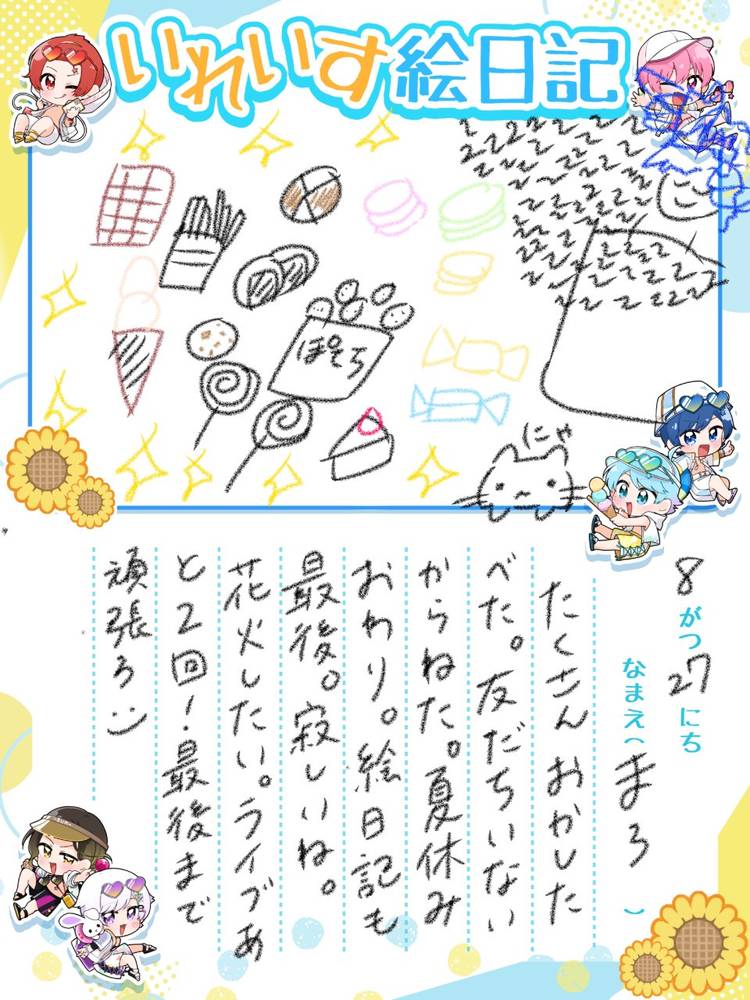 いれいす絵日記
zzzzzzzzzzzz
ぽそち
にゃ
8がつ27にち
なまえ(まろ)
たくさんおかした
べた。友だちいない
からねた。夏休み
おわり。絵日記も
最後。寂しいね。
花火したい。ライブあ
と2回!最後まで
頑張ろ:)